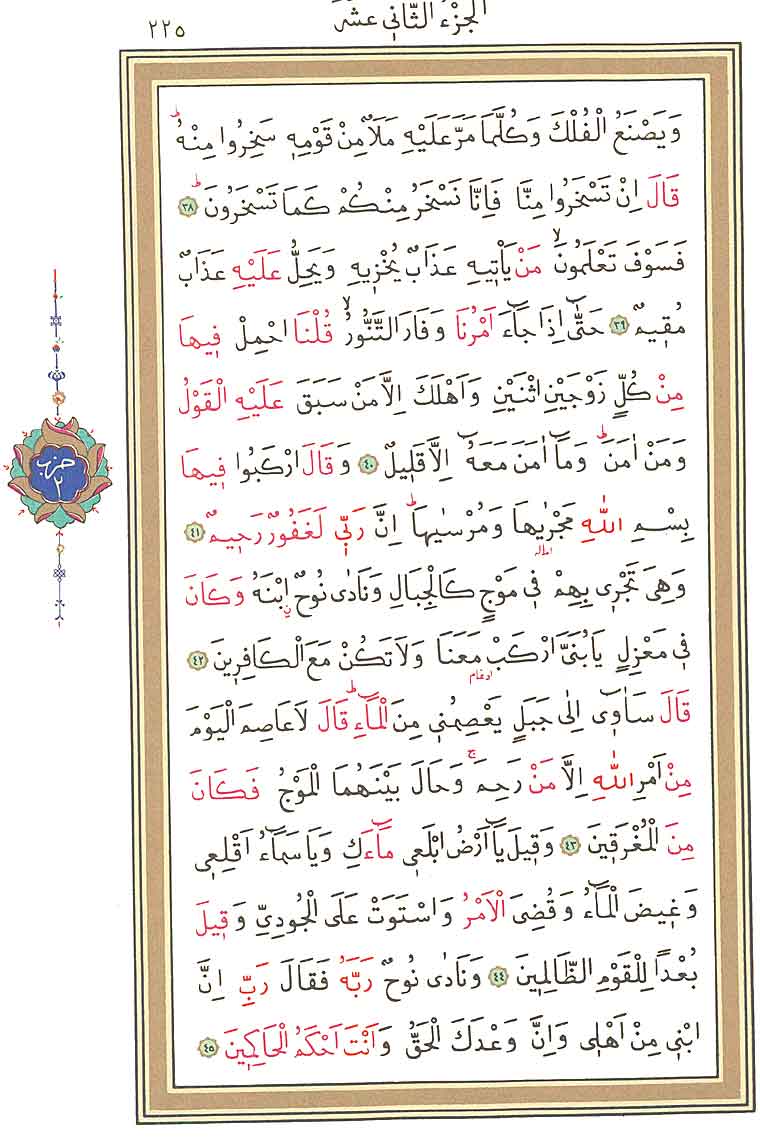 الجزء الثاني عشر
٢٢٥
وَيَصْنَعُ الْفُلْكَ وَكُلَّمَا مَرَّ عَلَيْهِ مَلَأٌ مِنْ قَوْمِهٖ سَخِرُوا مِنْهُۜ
قَالَ اِنْ تَسْخَرُوا مِنَّا فَاِنَّا نَسْخَرُ مِنْكُمْ كَمَا تَسْخَرُونَۜ ٣٨
فَسَوْفَ تَعْلَمُونَۙ مَنْ يَأْتٖيهِ عَذَابٌ يُخْزٖيهِ وَيَحِلُّ عَلَيْهِ عَذَابٌ
مُقٖيمٌ ٣٩ حَتّٰٓى اِذَا جَٓاءَ اَمْرُنَا وَفَارَ التَّنُّورُۙ قُلْنَا احْمِلْ فٖيهَا
مِنْ كُلٍّ زَوْجَيْنِ اثْنَيْنِ وَاَهْلَكَ اِلَّا مَنْ سَبَقَ عَلَيْهِ الْقَوْلُ
وَمَنْ اٰمَنَۜ وَمَٓا اٰمَنَ مَعَهُٓ اِلَّا قَلٖيلٌ ٤٠ وَقَالَ ارْكَبُوا فٖيهَا
بِسْمِ اللّٰهِ مَجْرٰۭىهَا وَمُرْسٰيهَاۜ اِنَّ رَبّٖي لَغَفُورٌ رَحٖيمٌ ٤١
اماله
وَهِيَ تَجْرٖي بِهِمْ فٖي مَوْجٍ كَالْجِبَالِ وَنَادٰى نُوحٌۨ ابْنَهُ وَكَانَ
فٖي مَعْزِلٍ يَا بُنَيَّ ارْكَبْ مَعَنَا وَلَا تَكُنْ مَعَ الْكَافِرٖينَ ٤٢
ادغام
قَالَ سَاٰوٖٓي اِلٰى جَبَلٍ يَعْصِمُنٖي مِنَ الْمَٓاءِۜ قَالَ لَا عَاصِمَ الْيَوْمَ
مِنْ اَمْرِ اللّٰهِ اِلَّا مَنْ رَحِمَۚ وَحَالَ بَيْنَهُمَا الْمَوْجُ فَكَانَ
مِنَ الْمُغْرَقٖينَ ٤٣ وَقٖيلَ يَٓا اَرْضُ ابْلَعٖي مَٓاءَكِ وَيَا سَمَٓاءُ اَقْلِعٖي
وَغٖيضَ الْمَٓاءُ وَقُضِيَ الْاَمْرُ وَاسْتَوَتْ عَلَى الْجُودِيِّ وَقٖيلَ
بُعْداً لِلْقَوْمِ الظَّالِمٖينَ ٤٤ وَنَادٰى نُوحٌ رَبَّهُ فَقَالَ رَبِّ اِنَّ
ابْنٖي مِنْ اَهْلٖي وَاِنَّ وَعْدَكَ الْحَقُّ وَاَنْتَ اَحْكَمُ الْحَاكِمٖينَ ٤٥
حزب
٢